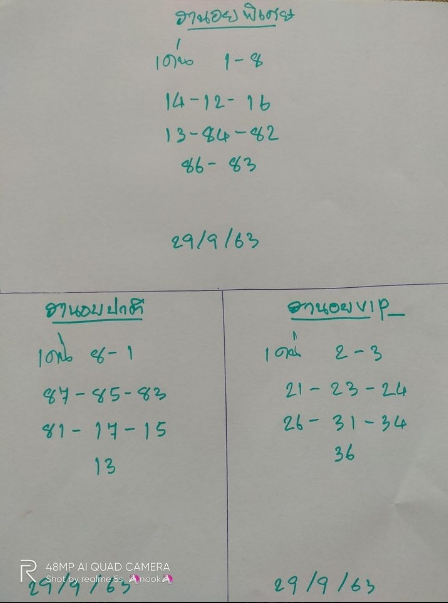 ฮานอยพิเศษ
เด่น 1-8
14-12-16
13-84-82
86-83
29/9/63
ฮานอยปกติ
เด่น 8-1
87-85-83
81-17-15
13
29/9/63
ฮานอยVIP
เด่น 2-3
21-23-24
26-31-34
36
29/9/63
48MP AI QUAD CAMERA
Shot by realme 5s
nook